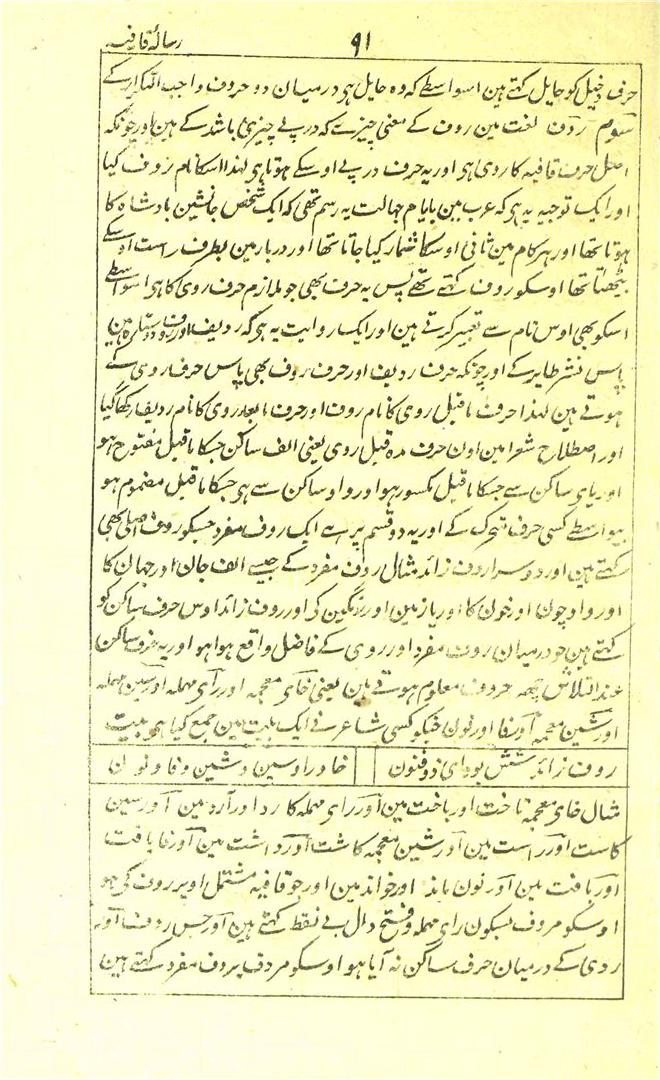 ۹۱ رسالۂ قافیہ
حرف دخیل کو حایل کہتے ہین اسواسطے کہ وہ حایل ہی درمیان دو حروف واجب التکرار کے
سوم ردف لغت مین ردف کے معنی چیزے کہ درپے چیزی باشد کے ہین اور چونکہ
اصل حرف قافیہ کا روی ہی اور یہ حرف درپے اوسکے ہوتا ہی لہذا اسکا نام ردف کیا
اور ایک توجیہ یہ ہی کہ عرب مین بایام جہالت یہ رسم تھی کہ ایک شخص جانشین بادشاہ کا
ہوتا تھا اور ہر کام مین ثانی اوسکا شمار کیا جاتا تھا اور دربار مین بطرف راست اوسکے
بیٹھتا تھا اوسکو ردف کہتے تھے پس یہ حرف بھی جو ملازم حرف روی کا ہی اسواسطے
اسکو بھی اوس نام سے تعبیر کرتے ہین اور ایک روایت یہ ہی کہ ردیف اور ردف دو ستارہ ہین
پاس نسر طایر کے اور چونکہ حرف ردیف اور حرف ردف بھی پاس حرف روی کے
ہوتے ہین لہذا حرف ماقبل روی کا نام ردف اور حرف مابعد روی کا نام ردیف رکھا گیا
اور اصطلاح شعرا مین اون حرف مدہ قبل روی یعنی الف ساکن جسکا ماقبل مفتوح ہو
اور یای ساکن سے جسکا ماقبل مکسور ہو اور واو ساکن سے ہی جسکا ماقبل مضموم ہو
بیواسطے کسی حرف متحرک کے اور یہ دو قسم پر ہے ایک ردف مفرد جسکو ردف اصلی بھی
کہتے ہین اور دوسرا ردف زائد مثال ردف مفرد کے جیسے الف جان اور جہان کا
اور واو چون اور خون کا اور یا زمین اور رنگین کی اور ردف زائد اوس حرف ساکن کو
کہتے ہین جو درمیان ردف مفرد اور روی کے فاضل واقع ہوا ہو اور یہ حرف ساکن
عند التلاش چھہ حروف معلوم ہوتے ہین یعنی خای معجمہ اور رای مہملہ اور سین مہملہ
اور شین معجمہ اور فا اور نون جنکو کسی شاعر نے ایک بیت مین جمع کیا ہی بیت
ردف زائد شش بود ای ذوفنون خا و را و سین و شین و فا و نون
مثال خای معجمہ تاخت اور باخت مین اور رای مہملہ کارد اور آرد مین اور سین
کاست اور راست مین اور شین معجمہ کاشت اور داشت مین اور فا یافت
اور بافت مین اور نون ماند اور خواند مین اور جو قافیہ مشتمل اوپر ردف کی ہو
اوسکو مردف بسکون رای مہملہ و فتح دال بے نقط کہتے ہین اور جس ردف اور
روی کے درمیان حرف ساکن نہ آیا ہو اوسکو مردف بردف مفرد کہتے ہین